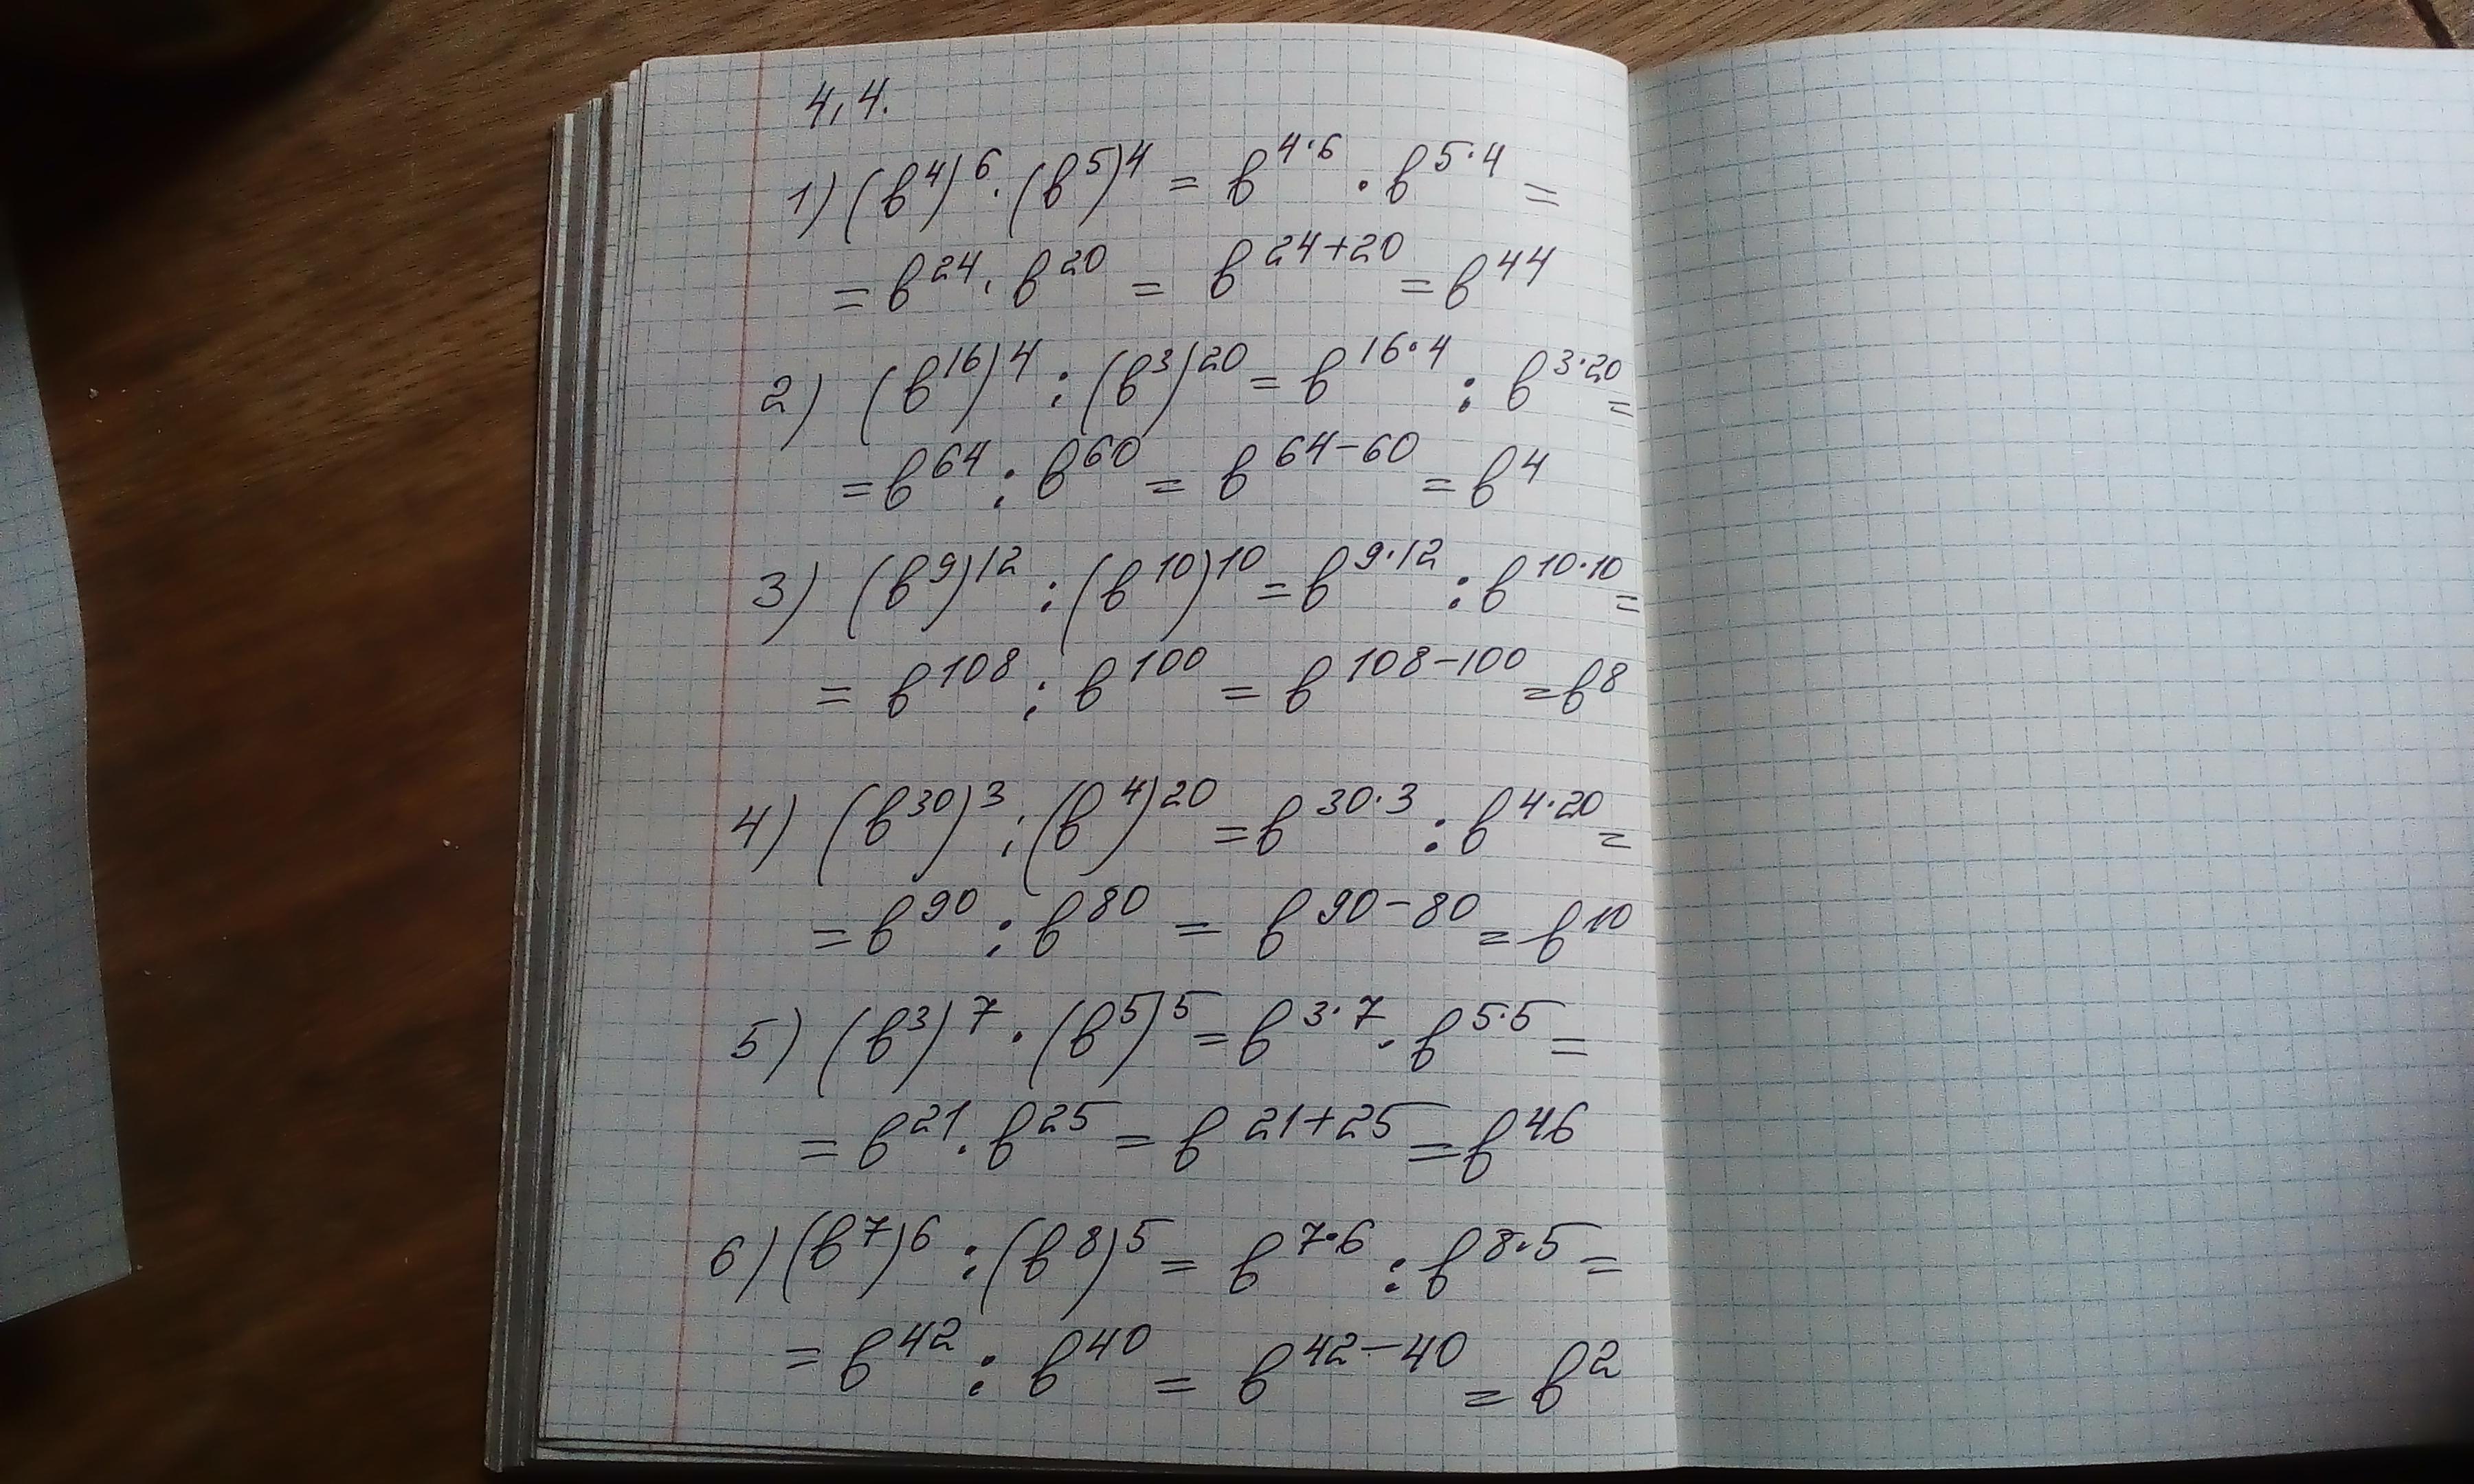 4,4.
1) (b⁴)⁶ · (b⁵)⁴ = b⁴·⁶ · b⁵·⁴ =
= b²⁴ · b²⁰ = b²⁴⁺²⁰ = b⁴⁴
2) (b¹⁶)⁴ : (b³)²⁰ = b¹⁶·⁴ : b³·²⁰ =
= b⁶⁴ : b⁶⁰ = b⁶⁴⁻⁶⁰ = b⁴
3) (b⁹)¹² : (b¹⁰)¹⁰ = b⁹·¹² : b¹⁰·¹⁰ =
= b¹⁰⁸ : b¹⁰⁰ = b¹⁰⁸⁻¹⁰⁰ = b⁸
4) (b³⁰)³ : (b⁴)²⁰ = b³⁰·³ : b⁴·²⁰ =
= b⁹⁰ : b⁸⁰ = b⁹⁰⁻⁸⁰ = b¹⁰
5) (b³)⁷ · (b⁵)⁵ = b³·⁷ · b⁵·⁵ =
= b²¹ · b²⁵ = b²¹⁺²⁵ = b⁴⁶
6) (b⁷)⁶ : (b⁸)⁵ = b⁷·⁶ : b⁸·⁵ =
= b⁴² : b⁴⁰ = b⁴²⁻⁴⁰ = b²